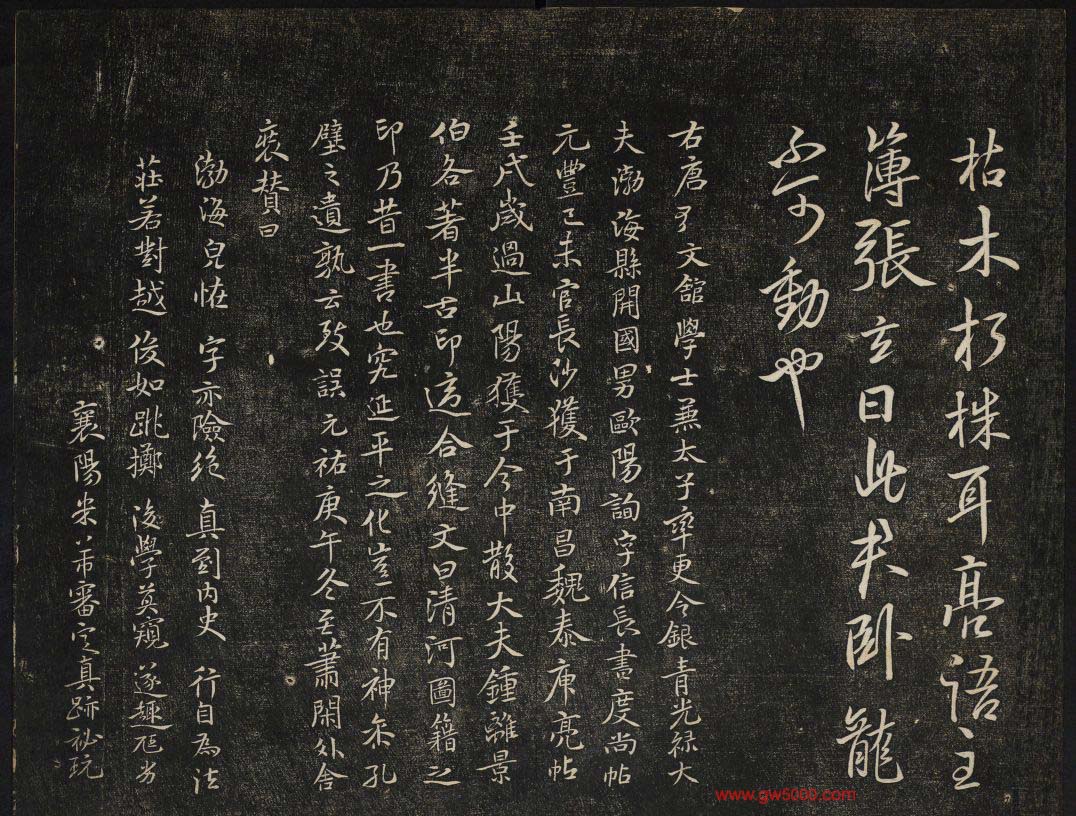 枯木朽株耳亮語主
簿張玄曰此夫卧龍
不可動也
右唐弘文館學士兼太子率更令銀青光禄大
夫渤海縣開國男歐陽詢字信長書度尚帖
元豐己未官長沙獲于南昌魏泰庾亮帖
壬戌歲過山陽獲于今中散大夫鍾離景
伯各著半古印這合縫文曰清河圖籍之
印乃昔一書也究延平之化豈不有神朱孔
璧之遺孰云致誤元祐庚午冬至蕭閑外舍
裝贊曰
渤海皃恠 字亦險絶 真到内史 行自為法
莊若對越 俊如跳擲 後學莫窺 遂趣尪劣
襄陽米芾審定真跡祕玩
www.gw5000.com